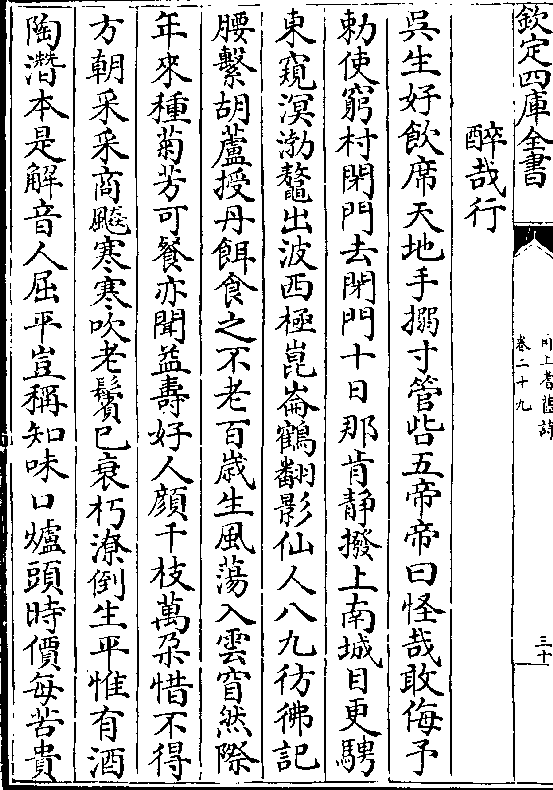 欽定四庫全書
卷二十九
三十
醉哉行
吳生好飲席天地手搦寸管呰五帝帝曰怪哉敢侮予
勅使窮村閉門去閉門十日那肯靜撥上南城目更騁
東窺溟渤鼇出波西極崑崙鶴翻影仙人八九彷彿記
腰繫胡蘆授丹餌食之不老百歲生風蕩入雲窅然際
年來種菊芳可餐亦聞益壽好人顏千枝萬朶惜不得
方朝采采商飈寒寒吹老鬢已衰朽潦倒生平惟有酒
陶潛本是解音人屈平豈稱知味口爐頭時價每苦貴